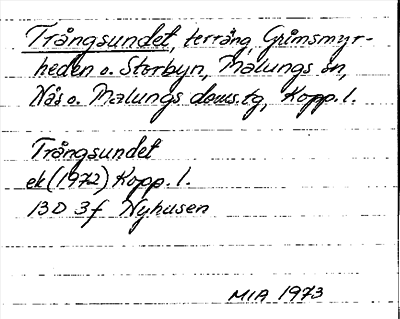 Trångsundet, terräng, Grimsmyr-
heden o. Storbyn, Malungs sn,
Nås o. Malungs doms.tg, Kopp. l.
Trångsundet
ek (1972) Kopp. l.
13D 3f Nyhusen
MIA 1973